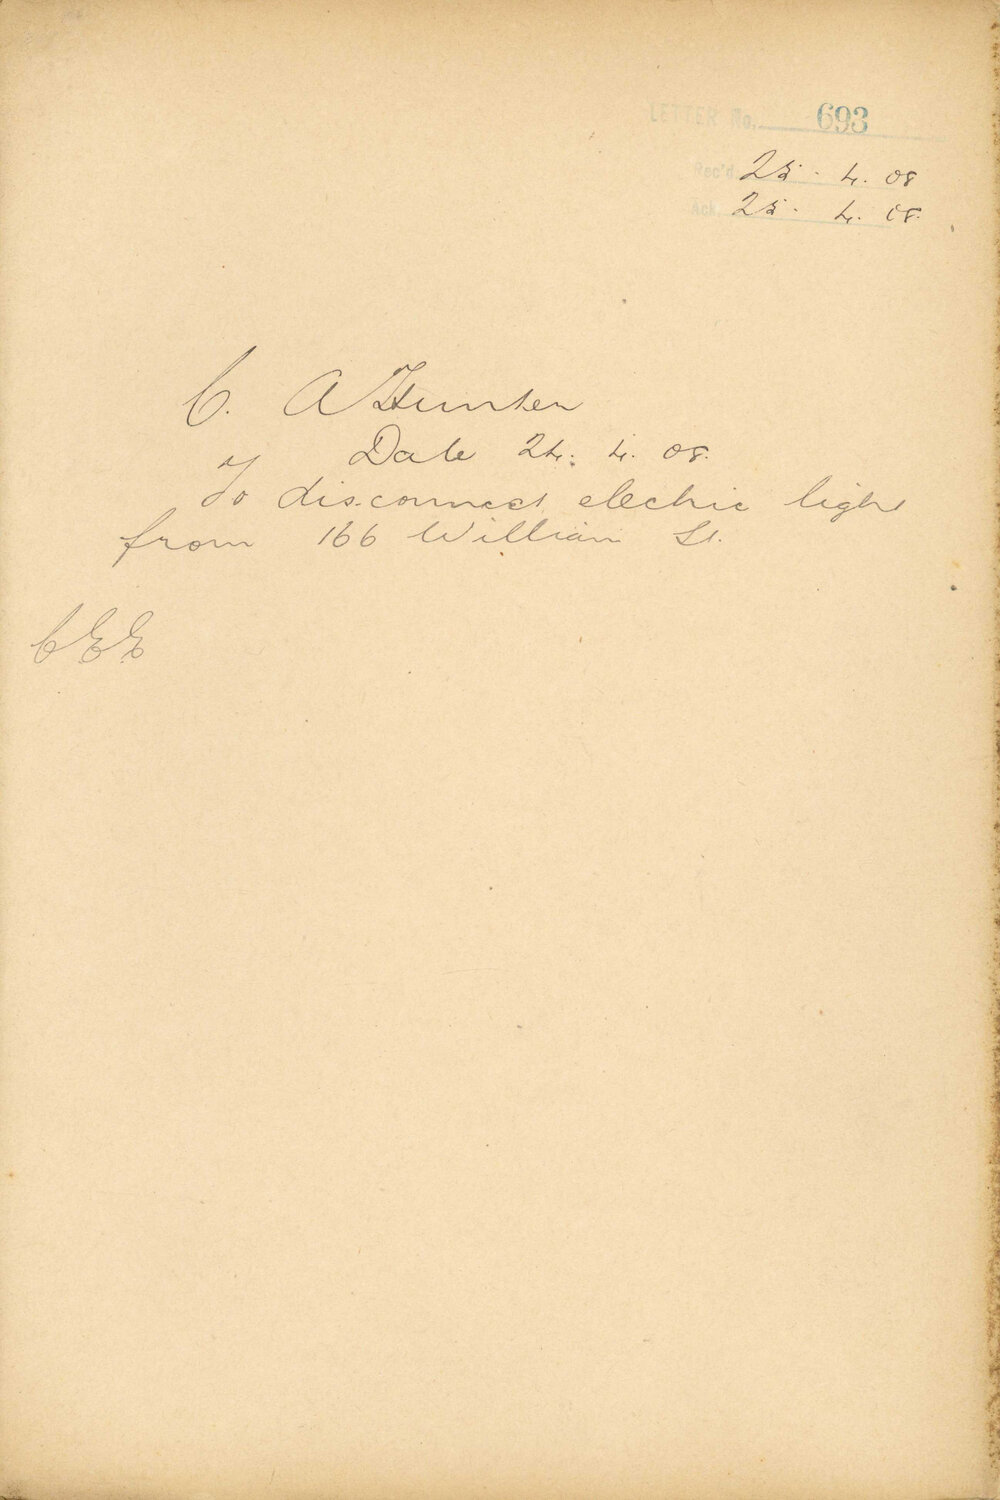 LETTER No. 693
Rec'd 25. 4. 08
Ack. 25. 4. 08.
C. A Hunter
Date 24. 4. 08.
To disconnect electric light
from 166 William St.
CEE